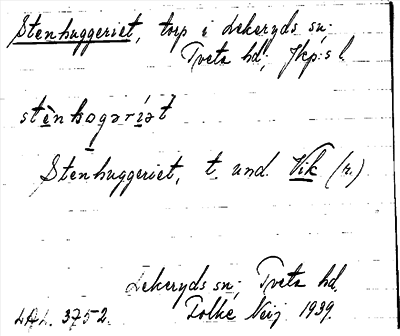 Stenhuggeriet, torp i Lekeryds sn;
Tveta hd; Jkp:s l.
stènhogəríət
Stenhuggeriet, t. und. Vik (h.)
Lekeryds sn; Tveta hd.
LAL. 3752. Folke Neij 1939.